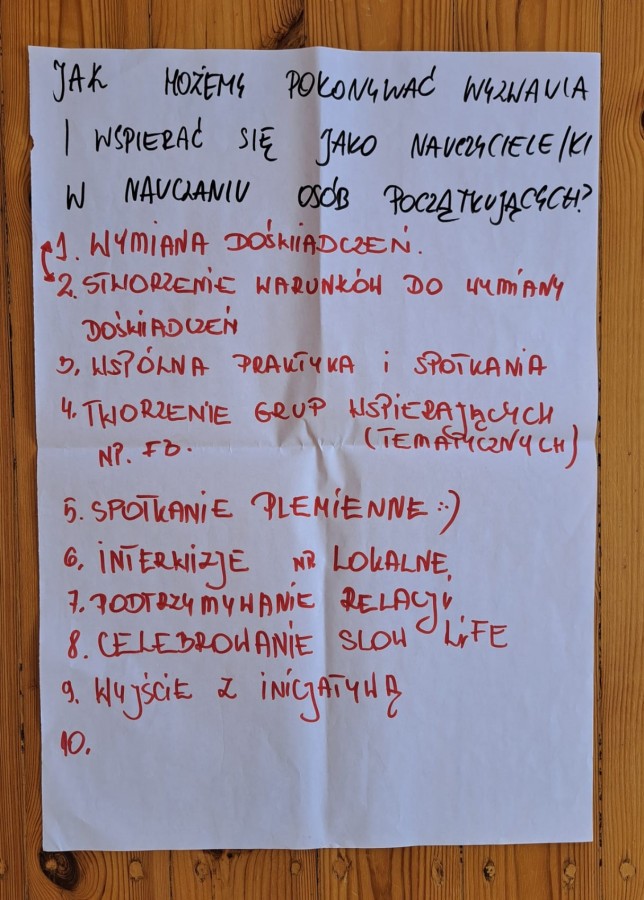 JAK MOŻEMY POKONYWAĆ WYZWANIA
I WSPIERAĆ SIĘ JAKO NAUCZYCIELE/KI
W NAUCZANIU OSÓB POCZĄTKUJĄCYCH?
1. WYMIANA DOŚWIADCZEŃ.
2. STWORZENIE WARUNKÓW DO WYMIANY
DOŚWIADCZEŃ
3. WSPÓLNA PRAKTYKA i SPOTKANIA
4. TWORZENIE GRUP WSPIERAJĄCYCH
NP. FB. (TEMATYCZNYCH)
5. SPOTKANIE PLEMIENNE :-)
6. INTERWIZJE NP. LOKALNE,
7. PODTRZYMYWANIE RELACJI
8. CELEBROWANIE SLOW LiFE
9. WYJŚCIE Z INICJATYWĄ
10.